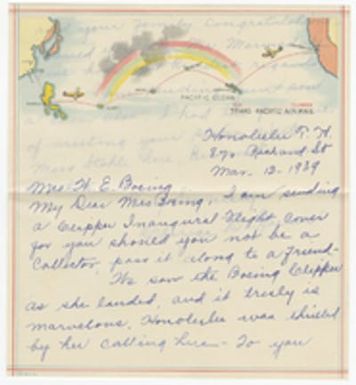 PACIFIC OCEAN
TRANS-PACIFIC AIR MAIL
Honolulu T. H.
Richard St
Mar. 12-1939
Mrs W. E. Boeing
My Dear Mrs Boeing, I am sending
a Clipper Inaugural Flight Cover
for you should you not be a
Collector pass it along to a friend-
We saw the Boeing Clipper
as she landed, and it truly is
marvelous. Honolulu was thrilled
by her calling here- To you